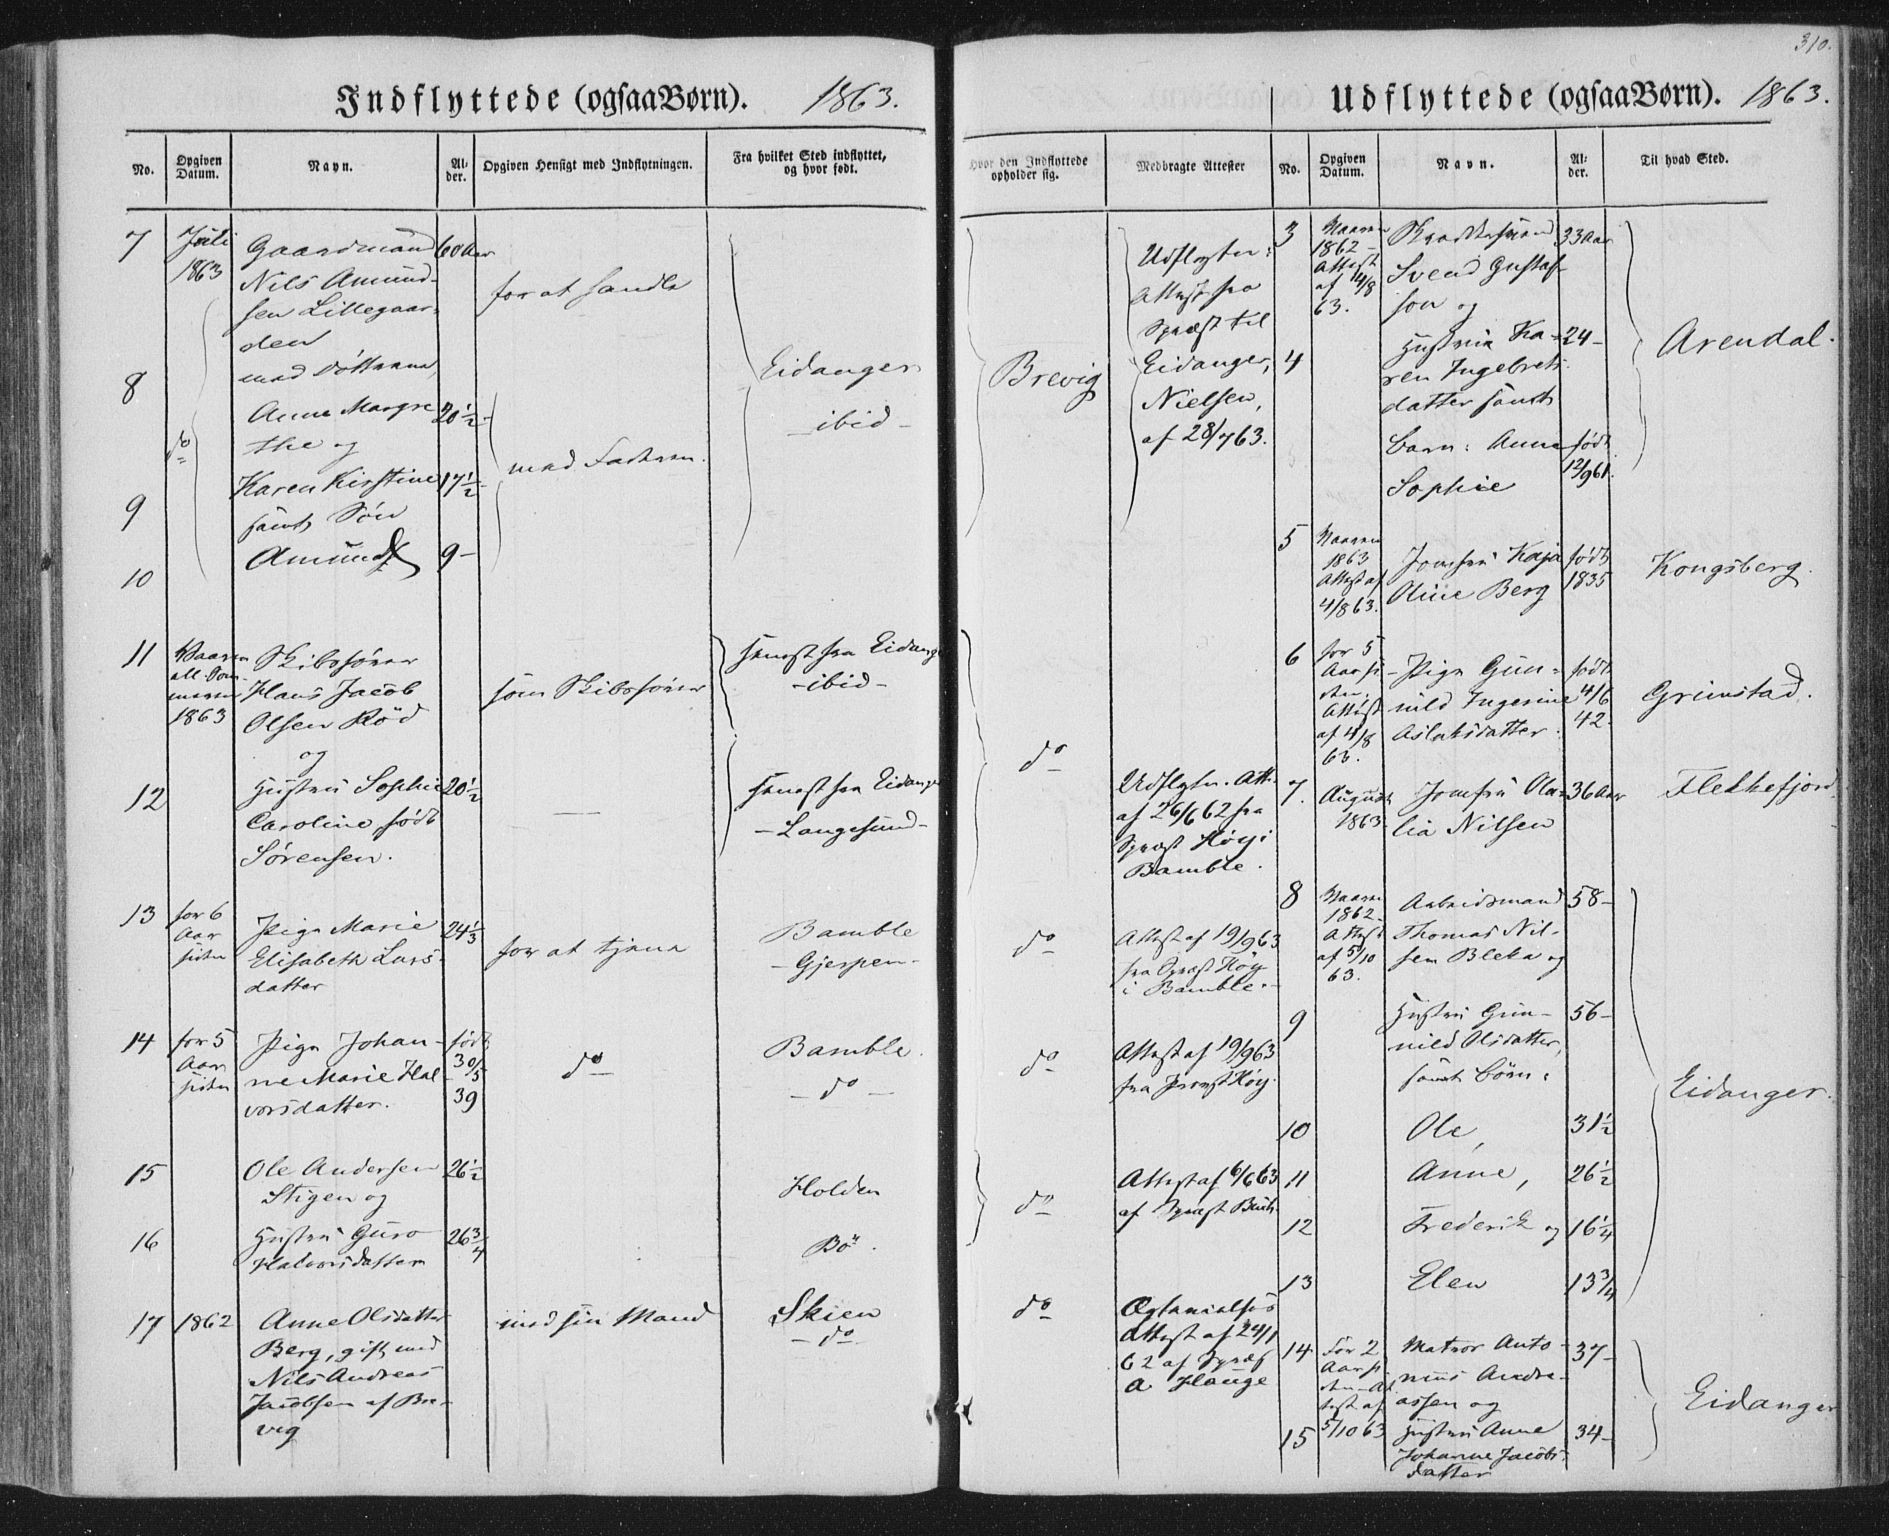 310.
Indflyttede (ogsaaBørn). 1863.
No.
Opgiven Datum.
Navn.
Alder.
Opgiven Hensigt med Indflytningen.
Fra hvilket Sted indflyttet, og hvor født.
Hvor den Indflyttede opholder sig.
Medbragte Attester
7
Juli
1863
Gaardmand
Nils Amund-
sen Lillegaar-
den
med Døttrene,
60 Aar
for at handle
Eidanger
Brevig
Udflytn:
Attest fra
Spræst til
Eidanger,
Nielsen,
af 28/7 63.
8
do
Anne Margre
the og
20½
med Faderen.
- ibid -
9
Karen Kirstine
samt Søn
17½
10
Amund
9 -
11
Vaaren
1863
Skibsfører
Hans Jacob
Olsen Röd
og
som Skibsfører
senest fra Eidanger
- ibid -
do
12
Hustru Sophie
Caroline, født
Sørensen.
20½
senest fra Eidanger
- Langesund -
Udflytn. Att.
af 26/6 62 fra
Spræst Höy i
Bamble.
13
for 6
Aar
siden
Pige Marie
Elisabeth Lars-
datter
24⅓
for at tjene
Bamble
- Gjerpen -
do
Attest af 19/9 63
fra Spræst Höy
i Bamble.
14
for 5
Aar
siden
Pige Johan-
ne Marie Hal
vorsdatter.
født
30/5
39
do
Bamble.
- do -
do
Attest af 19/9 63
fra Præst Höy.
15
Ole Andersen
Stigen og
26½
Holden
do
Attest af 6/6 63
af Spræst
16
Hustru Guro
Halvorsdatter
26¾
Bö.
17
1862
Anne Olsdatter
Berg, gift med
Nils Andreas
Jacobsen af Bre-
vig
med sin Mand
Skien
- do -
do
Egtevielses
Attest af 24/1
62 af Spræst
A Hauge
Udflyttede (ogsaaBørn). 1863.
No.
Opgiven Datum.
Navn.
Alder.
Til hvad Sted.
3
Vaaren
1862 -
Attest
af 14/8
63.
Svend Gustaf-
son og
33 Aar
Arendal.
4
Hustru Ka-
ren Ingebrets-
datter samt
24 -
Barn: Anne
Sophie
født
12/9 61.
5
Vaaren
1863
Attest af
4/8 63.
Jomfru Kaja
Oline Berg
født
1835
Kongsberg.
6
for 5
Aar si-
den.
Attest
af 4/8
63.
Pige Gun-
nild Ingerine
Aslaksdatter.
født
4/6
42.
Grimstad.
7.
August
1863
Jomfru Ola-
lia Nilsen
36 Aar
Flekkefjord.
8
Vaaren
1862 -
Attest
af 5/10
63.
Arbeidsmand
Thomas Nil-
sen Bleka og
58 -
Eidanger.
9
Hustru Gun-
nild Olsdatter,
samt Börn:
56 -
10
Ole,
31½
11
Anne,
26½
12
Frederik og
16¼
13
Elen
13¾
14
For 2
Aar si-
den - At
test af
5/10 63
Matros Anto-
nius Andre-
assen og
37 -
Eidanger
15
Hustru Anne
Johanne Jacobs-
datter
34 -